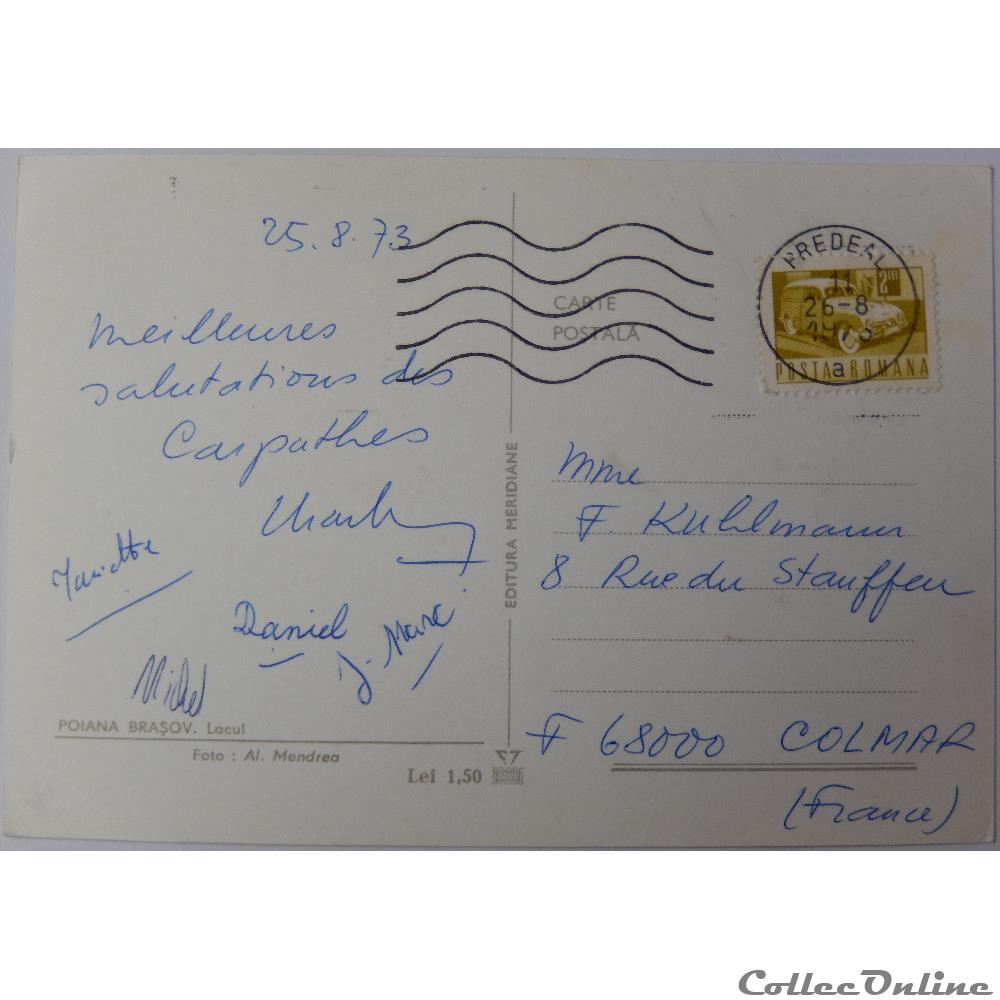 25.8.73
Meilleures
salutations des
Carpathes
Daniel
J-Marc
Michel
POIANA BRAŞOV. Lacul
Foto : Al. Mendrea
Lei 1,50
EDITURA MERIDIANE
CARTE
POSTALĂ
PREDEAL
11
26-8
1973
a
2 LEI
POSTA ROMANA
Mme
F. Kuhlmann
8 Rue du Stauffen
F 68000 COLMAR
(France)
CollecOnline